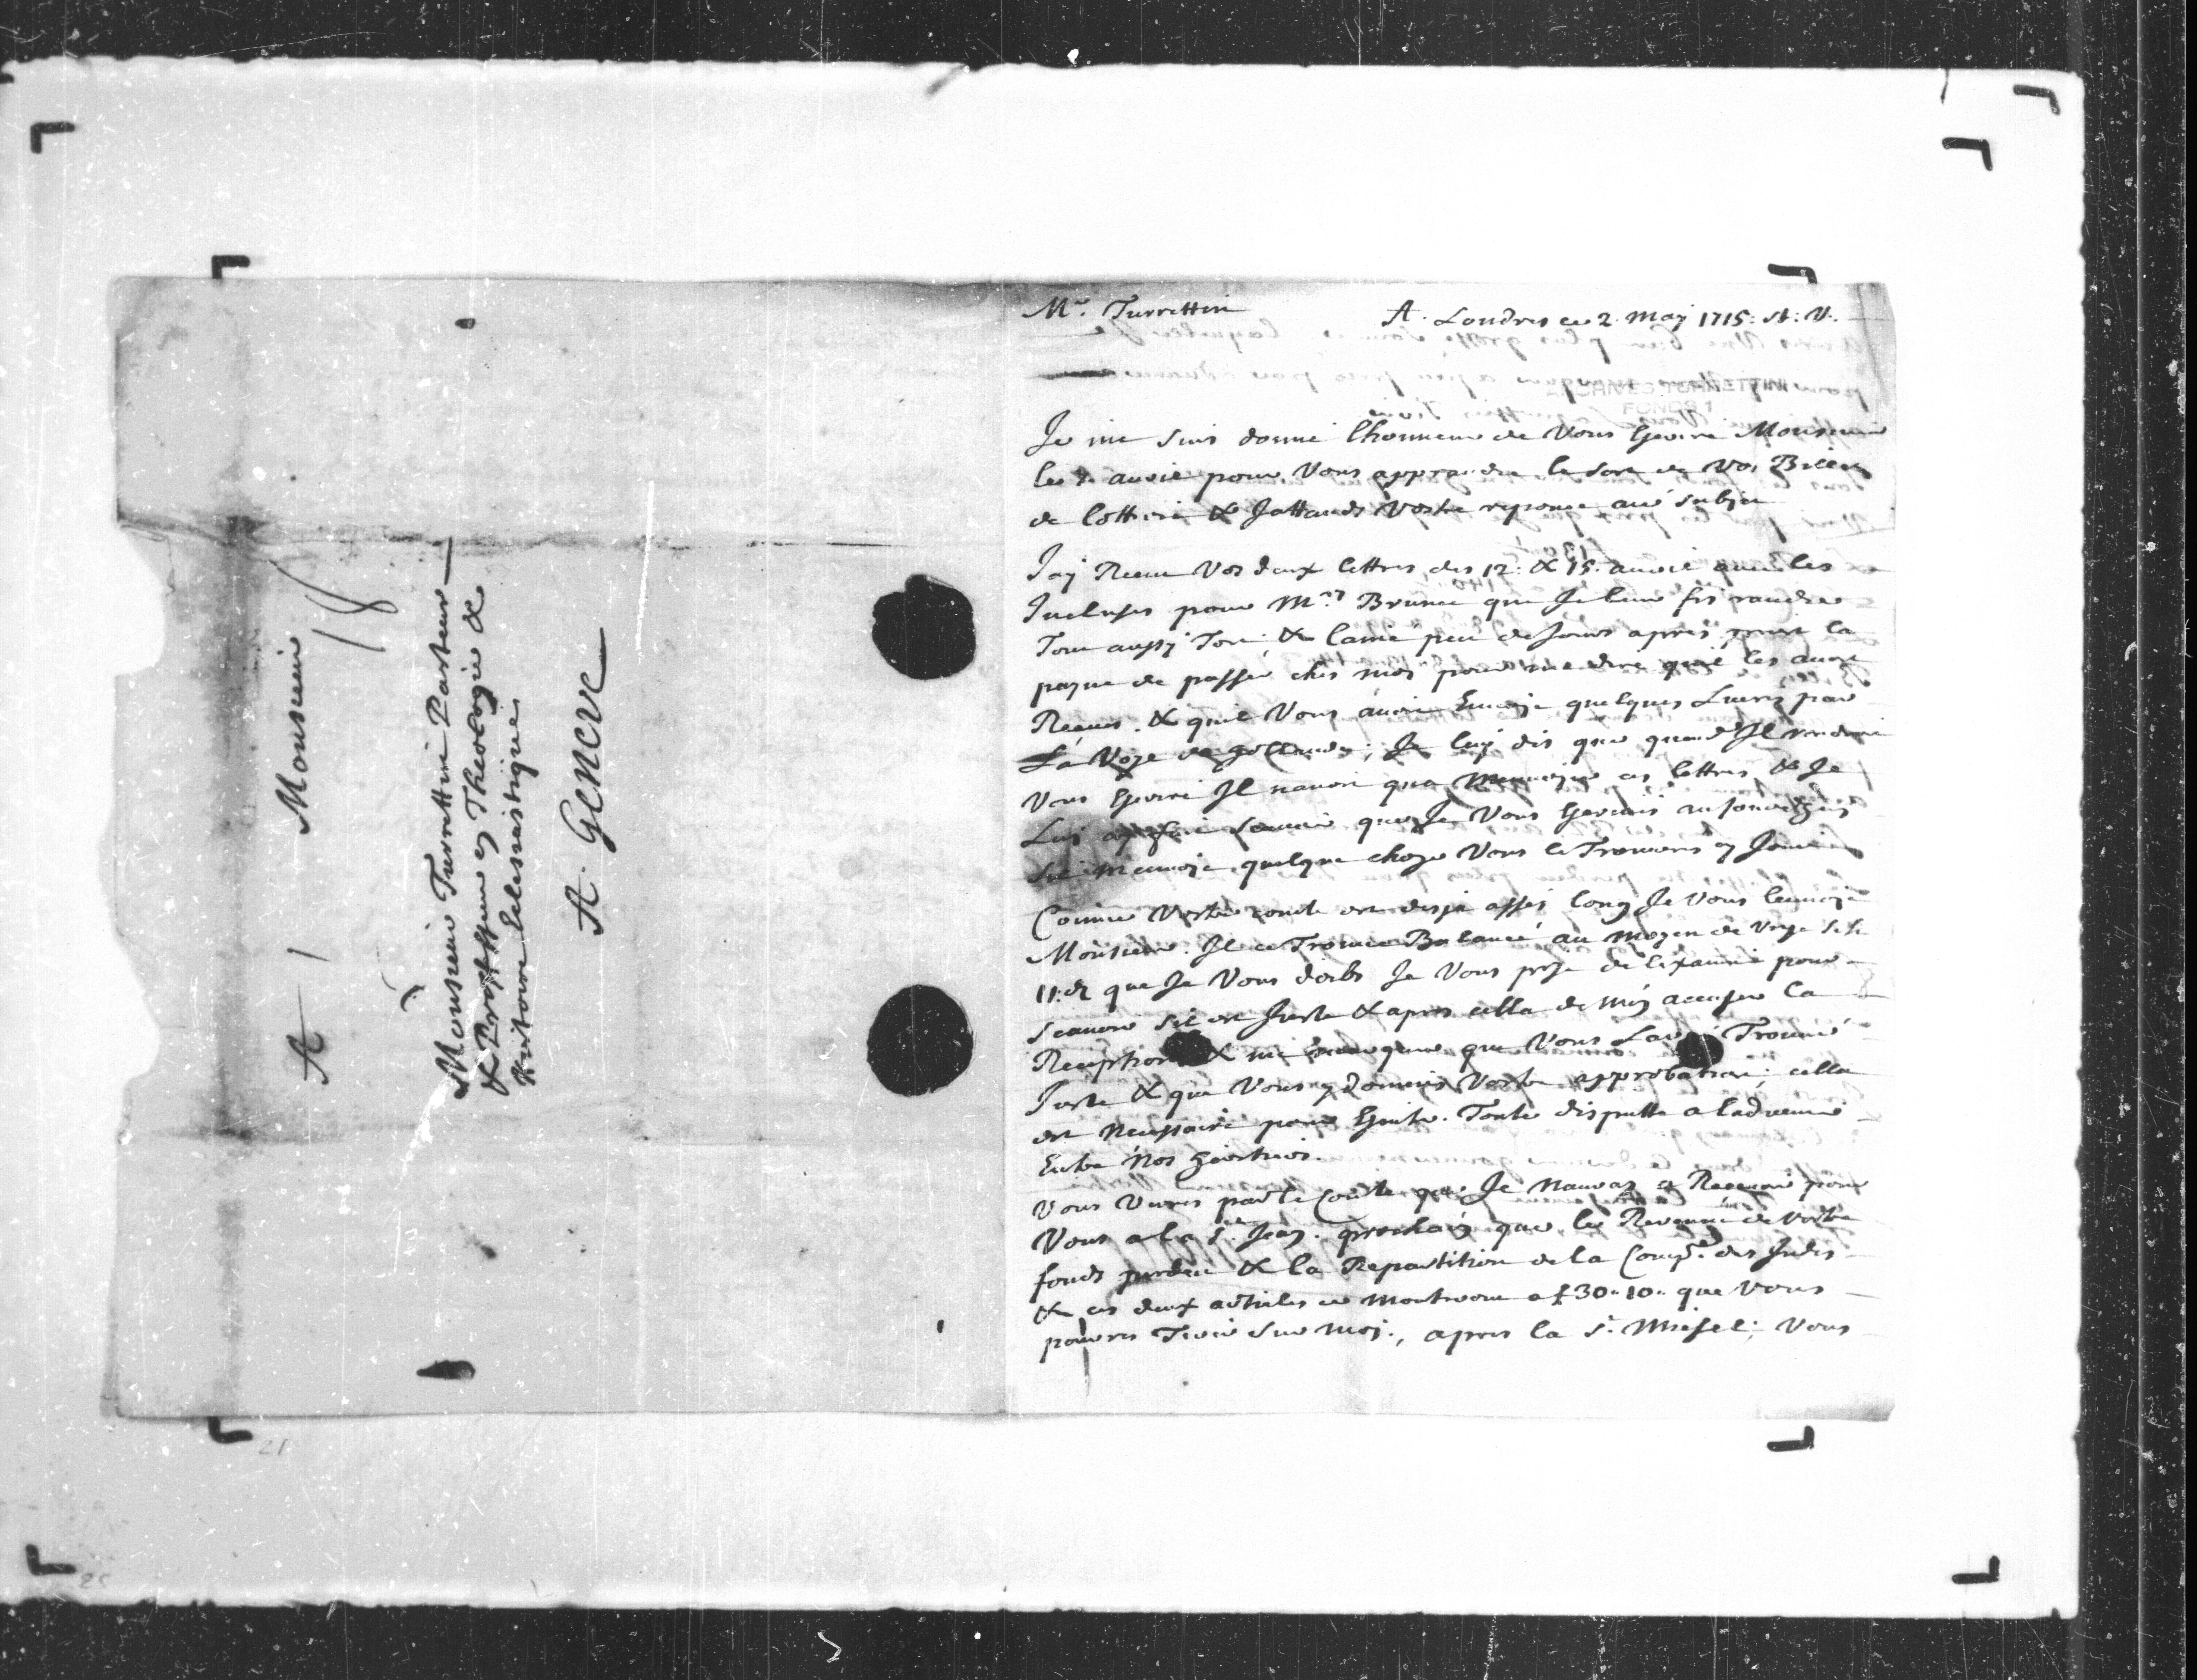 A Monsieur
18
Monsieur Turrettin Pasteur
& Proffesseur en Theologie &
Histoire Eclesiastique
A. Geneve
Mr. Turrettin
A. Londres ce 2. May 1715: st: V.
ARCHIVES TURRETTINI
FONDS 1
Je me suis donné lhonneur de Vous Escrire Monsieur
le avril pour Vous apprandre le sort de Vos Billets
de Lotterie & Jattands Vostre reponce au subjet
Jay Receu Vos deux lettres des 12. & 15. avril avec les
Incluses pour Mrs Brunet que Je leur fis randre
Tout aussy Tost & lainé peu de Jours apres print la
payne de passer ches moy pour me dire quil les avoit
Receues. & quil Vous avoit Envoyé quelques Livres par
La Voye de Hollande; Je luy dis que quand Il voudroit
Vous Escrire Il navoit qua Menvoyer ces lettres, & Je
Luy scavoir que Je Vous Escrivois
Sil Menvoye quelque choze Vous le Trouveres cy Joint
Comme Vostre conte est desja assés long Je Vous lenvoye
Monsieur. Il ce Trouve Balancé au moyen de
11: d que Je Vous doibs Je Vous prye de lexaminé pour
scavoir sil est Juste & apres cella de mén accuser la
Reception & me que Vous Laves Trouvé
Juste & que Vous y Donnes Vostre approbation; cella
est Necessaire pour Esvite. Toute disputte a ladvenir
Entre Nos Heritiers.
Vous Verres par le Conte que Je Nauray a Recevoir pour
Vous a la St. Jean. prochain que le Revenu de Vostre
fonds perdeu & la Repartition de la Compe. des Indes
& ces deux articles ce Montront a £ 30 " 10 " que Vous
pourres Tirer sur moy., apres la St. Misel; Vous
21
25